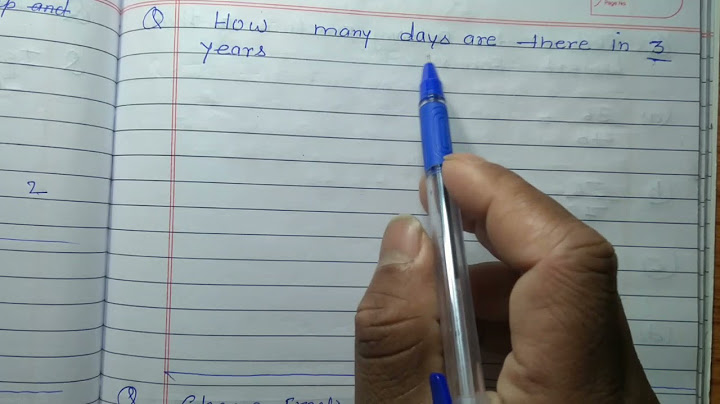 Page No.
p and
Q How many days are there in 3
years
2
Q